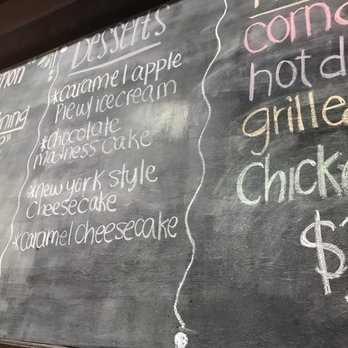 Desserts
*caramel apple
pie w/ ice cream
*chocolate
madness cake
*new york style
cheesecake
*caramel cheesecake
corn
hot d
grille
Chick
$